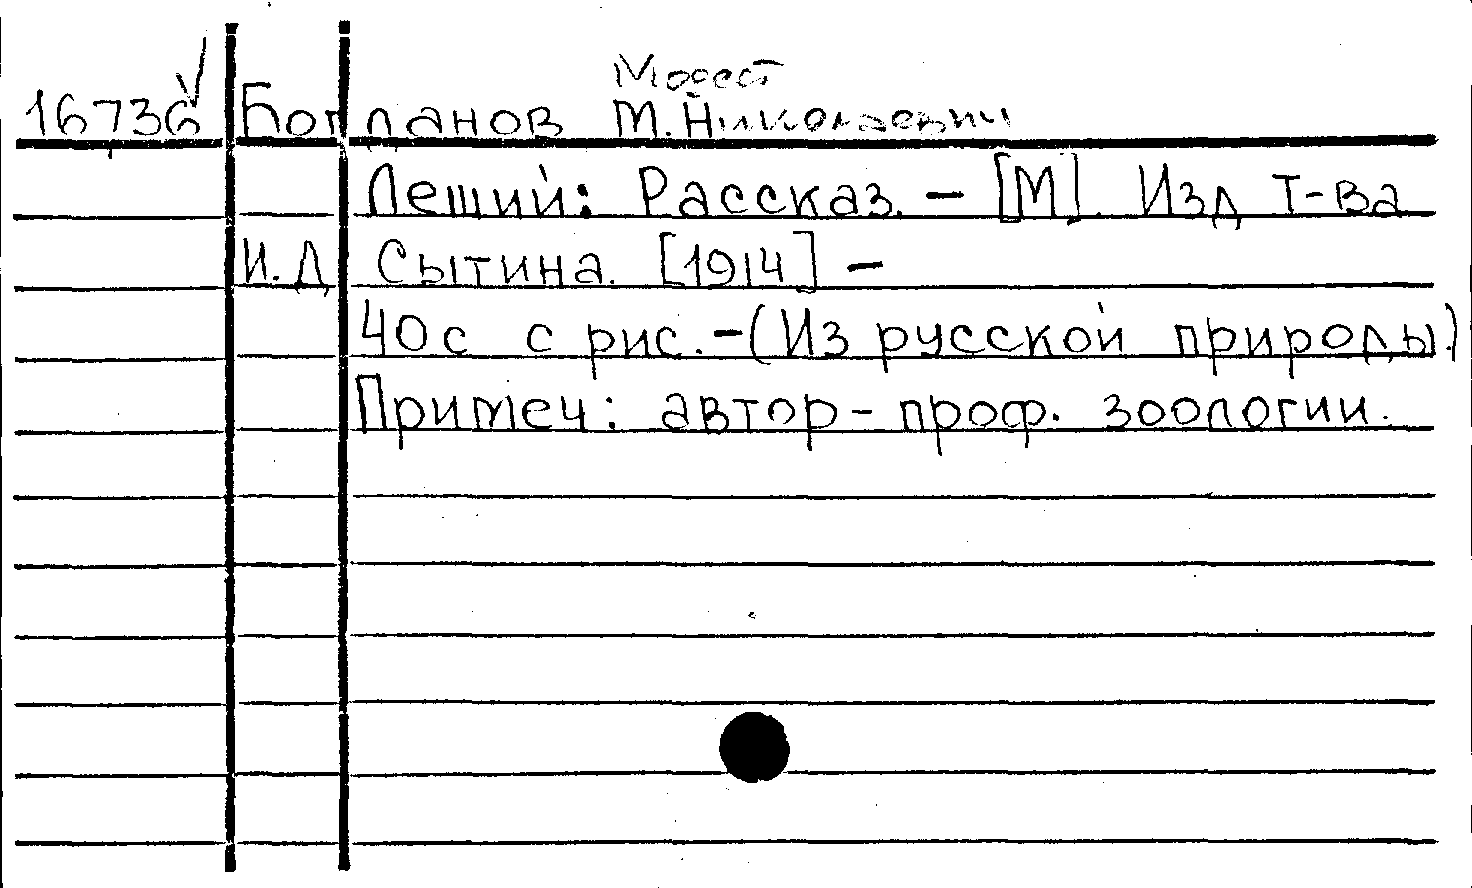 Модест
16736 Богданов М. Николаевич
Леший: Рассказ. - [М]. Изд Т-ва
И.Д Сытина. [1914] -
40с с рис. - (Из русской природы.)
Примеч: автор - проф. зоологии.